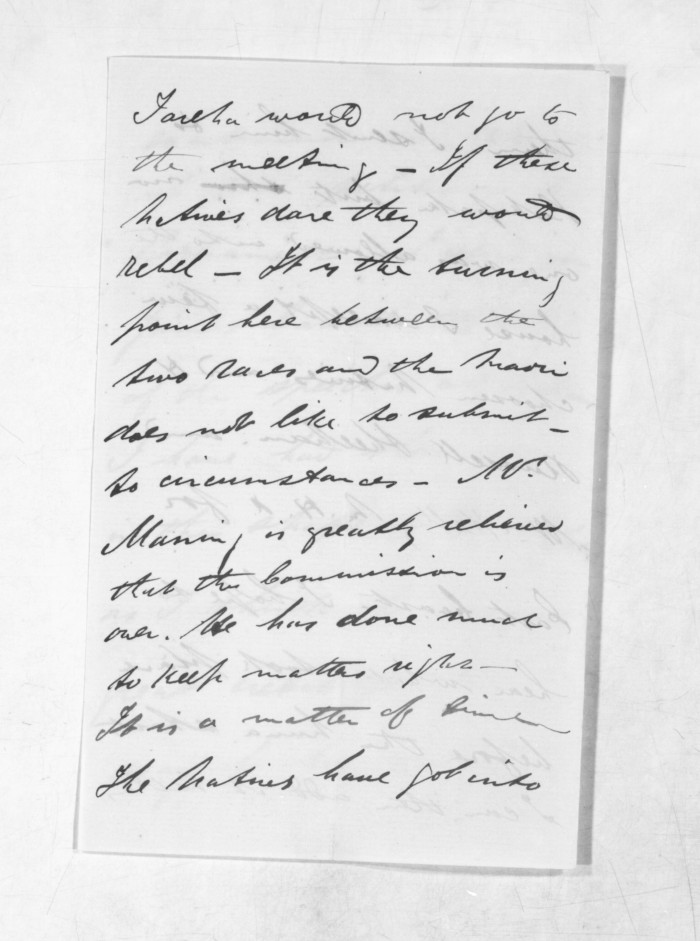 Tareha would not go to
the meeting - If these
Natives dare they would
rebel - It is the turning
point here between the
two races and the Maori
does not like to submit -
to circumstances - Mr.
Maning is greatly relieved
that the Commission is
over. He has done much
to keep matters right -
It is a matter of time
The Natives have got into